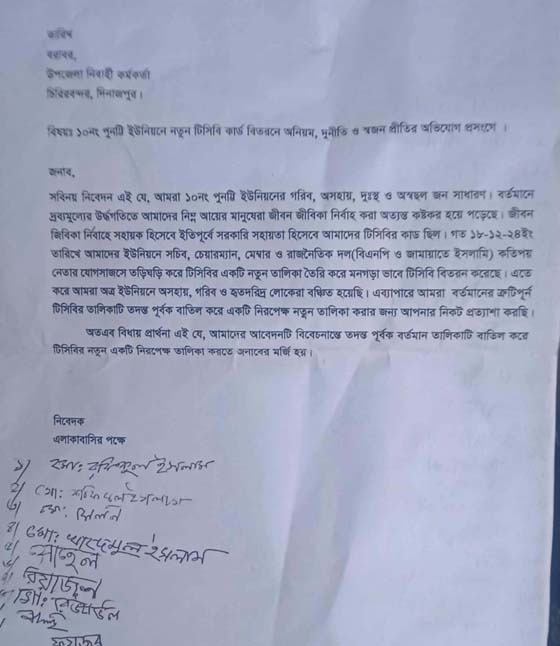 তারিখ
বরাবর,
উপজেলা নির্বাহী কর্মকর্তা
চিরিরবন্দর, দিনাজপুর।
বিষয়ঃ ১০নং পুনট্টি ইউনিয়নে নতুন টিসিবি কার্ড বিতরনে অনিয়ম, দূর্নীতি ও স্বজন প্রীতির অভিযোগ প্রসংগে ।
জনাব,
সবিনয় নিবেদন এই যে, আমরা ১০নং পুনট্টি ইউনিয়নের গরিব, অসহায়, দুঃস্থ ও অস্বচ্ছল জন সাধারণ। বর্তমানে
দ্রব্যমূল্যের উর্দ্ধগতিতে আমাদের নিম্ন আয়ের মানুষেরা জীবন জীবিকা নির্বাহ করা অত্যন্ত কষ্টকর হয়ে পড়েছে। জীবন
জিবিকা নির্বাহে সহায়ক হিসেবে ইতিপূর্বে সরকারি সহায়তা হিসেবে আমাদের টিসিবির কার্ড ছিল। গত ১৮-১২-২৪ইং
তারিখে আমাদের ইউনিয়নে সচিব, চেয়ারম্যান, মেম্বার ও রাজনৈতিক দল(বিএনপি ও জামায়াতে ইসলামি) কতিপয়
নেতার যোগসাজসে তড়িঘড়ি করে টিসিবির একটি নতুন তালিকা তৈরি করে মনগড়া ভাবে টিসিবি বিতরন করেছে। এতে
করে আমরা অত্র ইউনিয়নে অসহায়, গরিব ও হতদরিদ্র লোকেরা বঞ্চিত হয়েছি। এব্যাপারে আমরা বর্তমানের ত্রুটিপূর্ন
টিসিবির তালিকাটি তদন্ত পূর্বক বাতিল করে একটি নিরপেক্ষ নতুন তালিকা করার জন্য আপনার নিকট প্রত্যাশা করছি।
অতএব বিধায় প্রার্থনা এই যে, আমাদের আবেদনটি বিবেচনান্তে তদন্ত পূর্বক বর্তমান তালিকাটি বাতিল করে
টিসিবির নতুন একটি নিরপেক্ষ তালিকা করতে জনাবের মর্জি হয়।
নিবেদক
এলাকাবাসির পক্ষে
১) মোঃ রফিকুল ইসলাম
২) মোঃ শফিকুল ইসলাম
৩) মোঃ মিলন
৪) মোঃ খাদেমুল ইসলাম
৫) সোহেল
রিয়াজুল
মোঃ